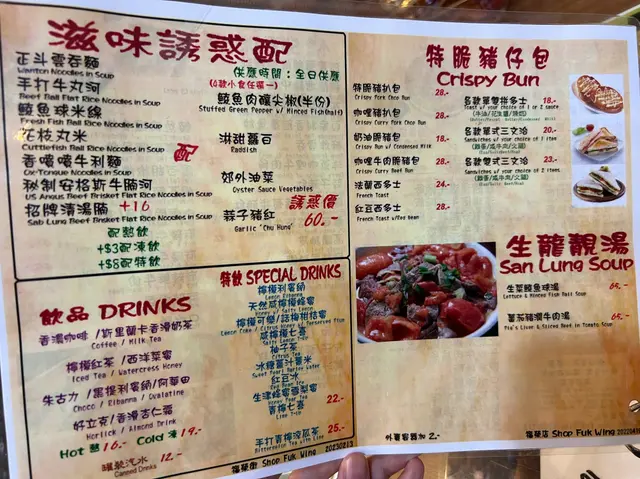 滋味誘惑配
供應時間：全日供應
正斗雲吞麵
Wanton Noodles in Soup
手打牛丸河
Beef Ball Flat Rice Noodles in Soup
鯪魚球米線
Fresh Fish Ball Rice Noodles in Soup
花枝丸米
Cuttlefish Ball Rice Noodles in Soup
香嗱嗱牛脷麵
Ox-Tongue Noodles in Soup
秘制安格斯牛腩河
US Angus Beef Brisket Flat Rice Noodles in Soup
招牌清湯腩 +16
Sab Lung Beef Brisket Flat Rice Noodles in Soup
配熱飲
+$3配凍飲
+$8配特飲
配
(4款小食任選一)
鯪魚肉釀尖椒(半份)
Stuffed Green Pepper w/ Minced Fish(half)
淋甜蘿白
Raddish
郊外油菜
Oyster Sauce Vegetables
蒜子豬紅
Garlic "Chu Hung"
誘惑價
60.-
飲品 DRINKS
香滑咖啡 /斯里蘭卡香滑奶茶
Coffee / Milk Tea
檸檬紅茶 /西洋菜蜜
Iced Tea / Watercress Honey
朱古力 /黑提利賓納/阿華田
Choco / Ribanna / Ovalatine
好立克/香滑杏仁霜
Horlick / Almond Drink
Hot 熱 16.- Cold 凍 19.-
罐裝汽水 12.-
Canned Drinks
特飲 SPECIAL DRINKS
檸檬利賓納
Lemon Ribanna
Honey w/ Salty Lemon
檸檬可樂/話梅柑桔蜜
Salty Lemon 7-Up
柚子茶
Citrus Tea
冰糖薏米
Sweet Pearl Barley Water
紅豆冰
Red Bean Ice
22.-
Lime 7-Up
25.-
Bittermelon Tea with Lime
福榮街 Shop Fuk Wing 20230213
特脆豬仔包
Crispy Bun
特脆豬扒包 28.-
Crispy Pork Chop Bun
咖喱豬扒包 28.-
Crispy Curry Pork Chop Bun
奶油脆豬包 18.-
Crispy Bun w/ Condensed Milk
咖喱牛肉脆豬包 28.-
Crispy Curry Beef Bun
法蘭西多士 24.-
French Toast
紅豆西多士 28.-
French Toast w/Red Bean
各款單雙拼多士 18.-
Toast w/ your choice of 1 or 2 sauce
(牛油/花生醬/煉奶)
各款單式三文治 20.-
Sandwiches w/ your choice of 1 item
(雞蛋/咸牛肉/火腿)
(Egg/Salty Beef/Ham)
各款雙式三文治 23.-
Sandwiches w/ your choice of 2 items
(雞蛋/咸牛肉/火腿)
(Egg/Salty Beef/Ham)
生龍靚湯
San Lung Soup
生菜鯪魚球湯 64.-
Lettuce & Minced Fish Ball Soup
蕃茄豬潤牛肉湯 65.-
Pig's Liver & Sliced Beef in Tomato Soup
外賣盛器另加 2.-
福榮店 Shop Fuk Wing